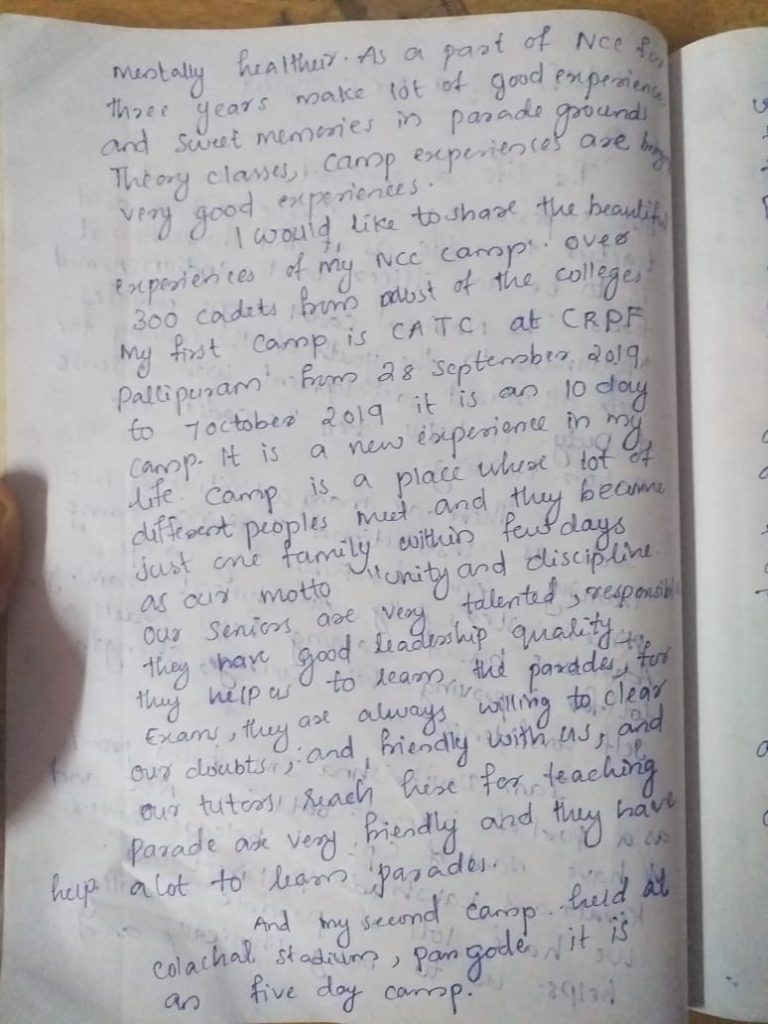 mentally healthier. As a part of NCC for
three years make lot of good experience
and sweet memories in parade grounds
Theory classes, camp experiences are
very good experiences.
I would like to share the beautiful
experiences of my NCC camp. over
300 cadets from most of the colleges
My first camp is CATC at CRPF
Pallipuram from 28 september 2019
to 7 october 2019 it is an 10 day
camp. It is a new experience in my
life. camp is a place where lot of
different peoples meet and they become
just one family within few days
as our motto "unity and discipline.
our seniors are very talented, responsible
they have good leadership quality
they help us to learn the parades, for
Exams, they are always willing to clear
our doubts, and friendly with us, and
our tutors reach here for teaching
parade are very friendly and they have
help a lot to learn parades.
And my second camp held at
colachal stadium, pangode it is
an five day camp.